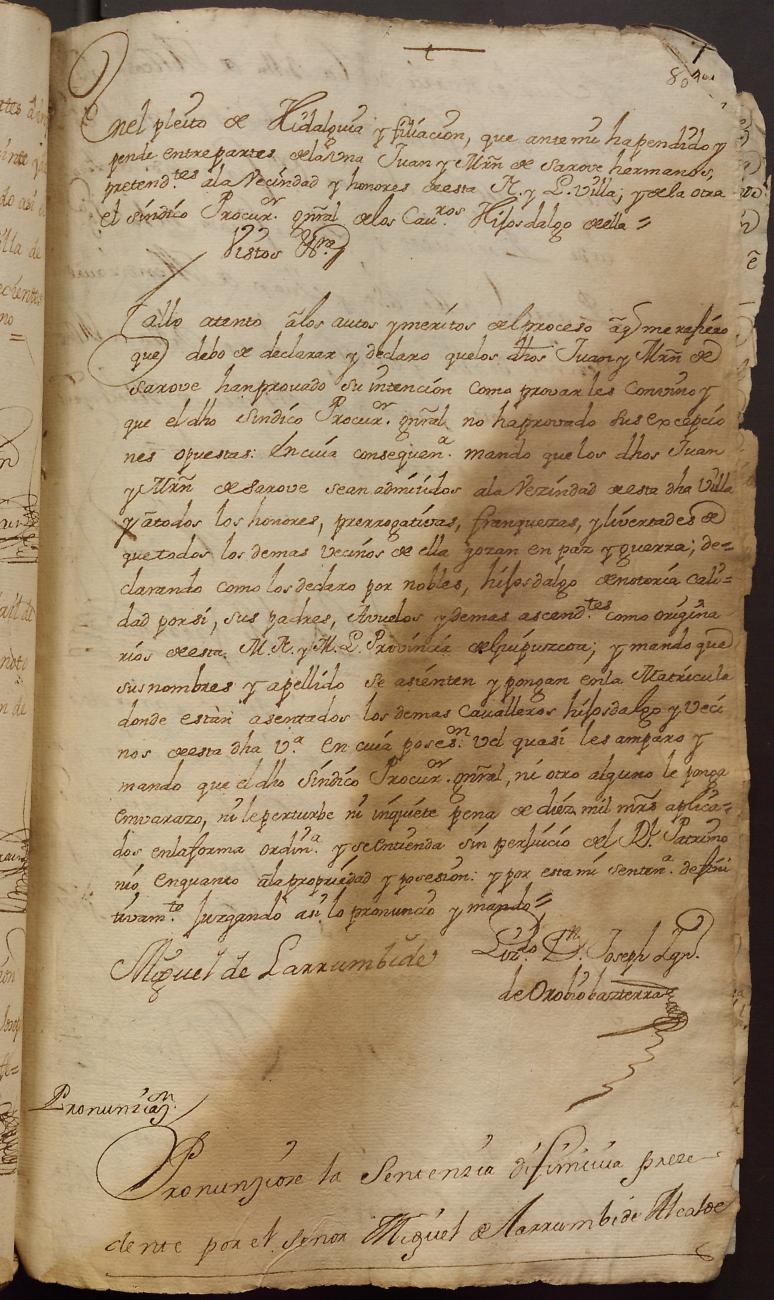 80
Enel pleito de Hidalguia y filiacion, que ante mi ha pendido y
pende entre partes dela una Juan y Mrn de Sarove hermanos,
pretend.tes ala Vecindad y honores de esta N. y L. Villa; y dela otra
el sindico Procur.or gñral delos Cau.ros Hijosdalgo de ella =
Vistos &ra
Fallo atento alos autos y meritos del proceso aq me refiero
que debo de declarar y declaro quelos dhos Juan y Mrn de
Sarove han provado su intencion como provarles convino y
que el dho Sindico Procur.or gñral no ha provado sus excepcio
nes opuestas: En cuia consequen.a mando que los dhos Juan
y Mrn de Sarove sean admitidos ala Vezindad de esta dha Villa
y a todos los honores, prerrogativas, franquezas, y livertades de
que todos los demas vecinos de ella gozan en paz y guerra; de=
clarando como los declaro por nobles, hijosdalgo de notoria cali=
dad por si, sus padres, Avuelos y demas ascend.tes como origina
rios de esta M. N. y M. L. Provincia de Guipuzcoa; y mando que
sus nombres y apellido se asienten y pongan en la Matricula
donde estàn asentados los demas Cavalleros hijosdalgo y veci
nos de esta dha V.a en cuia poses.on vel quasi les amparo y
mando que el dho Sindico Procur.or gñral, ni otro alguno le ponga
envarazo, ni le perturbe ni inquiete pena de diez mil mrs aplica=
dos en la forma ordin.a y se entienda sin perjuicio del Rl. Patrimo
nio, en quanto ala propriedad y posesion: y por esta mi senten.a defini
tivam.te juzgando asi lo pronuncio y mando =
Miguel de Larrumbide
Liz.do Dn. Joseph Ign.
de Orobiobazterra
Pronunziaz.n
Pronunziose la Sentenzia difinitiva preze
dente por el señor Miguel de Larrumbide Alcalde